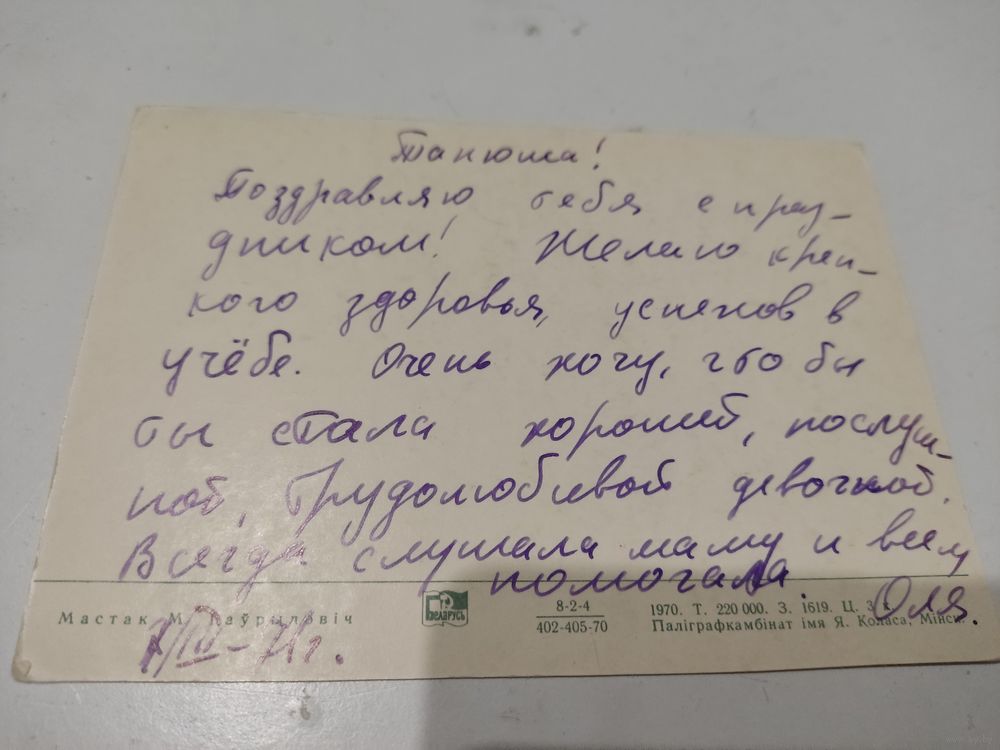 Танюша!
Поздравляю тебя с праз-
дником! Желаю креп-
кого здоровья, успехов в
учёбе. Очень хочу, чтобы
ты стала хорошей, послуш-
ной, трудолюбивой девочкой.
Всегда слушала маму и всем
помогала. Оля.
Мастак М. Гаўрыловіч
БЕЛАРУСЬ
8-2-4
402-405-70
1970. Т. 220 000. З. 1619. Ц. 3 к.
Паліграфкамбінат імя Я. Коласа, Мінск.
/III-71г.